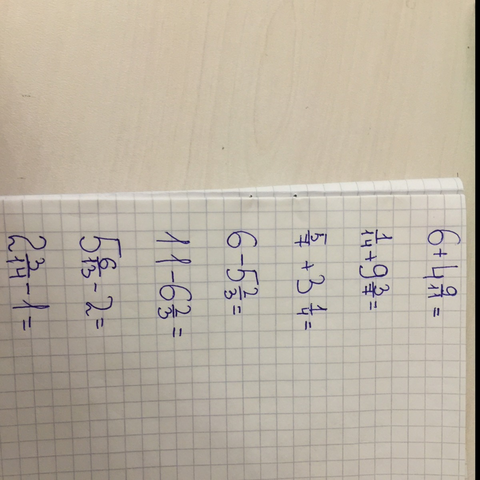 6 + 4 9/11 =
1/14 + 9 3/7 =
5/7 + 3 1/4 =
6 - 5 2/3 =
11 - 6 2/3 =
5 6/13 - 2 =
2 3/14 - 1 =